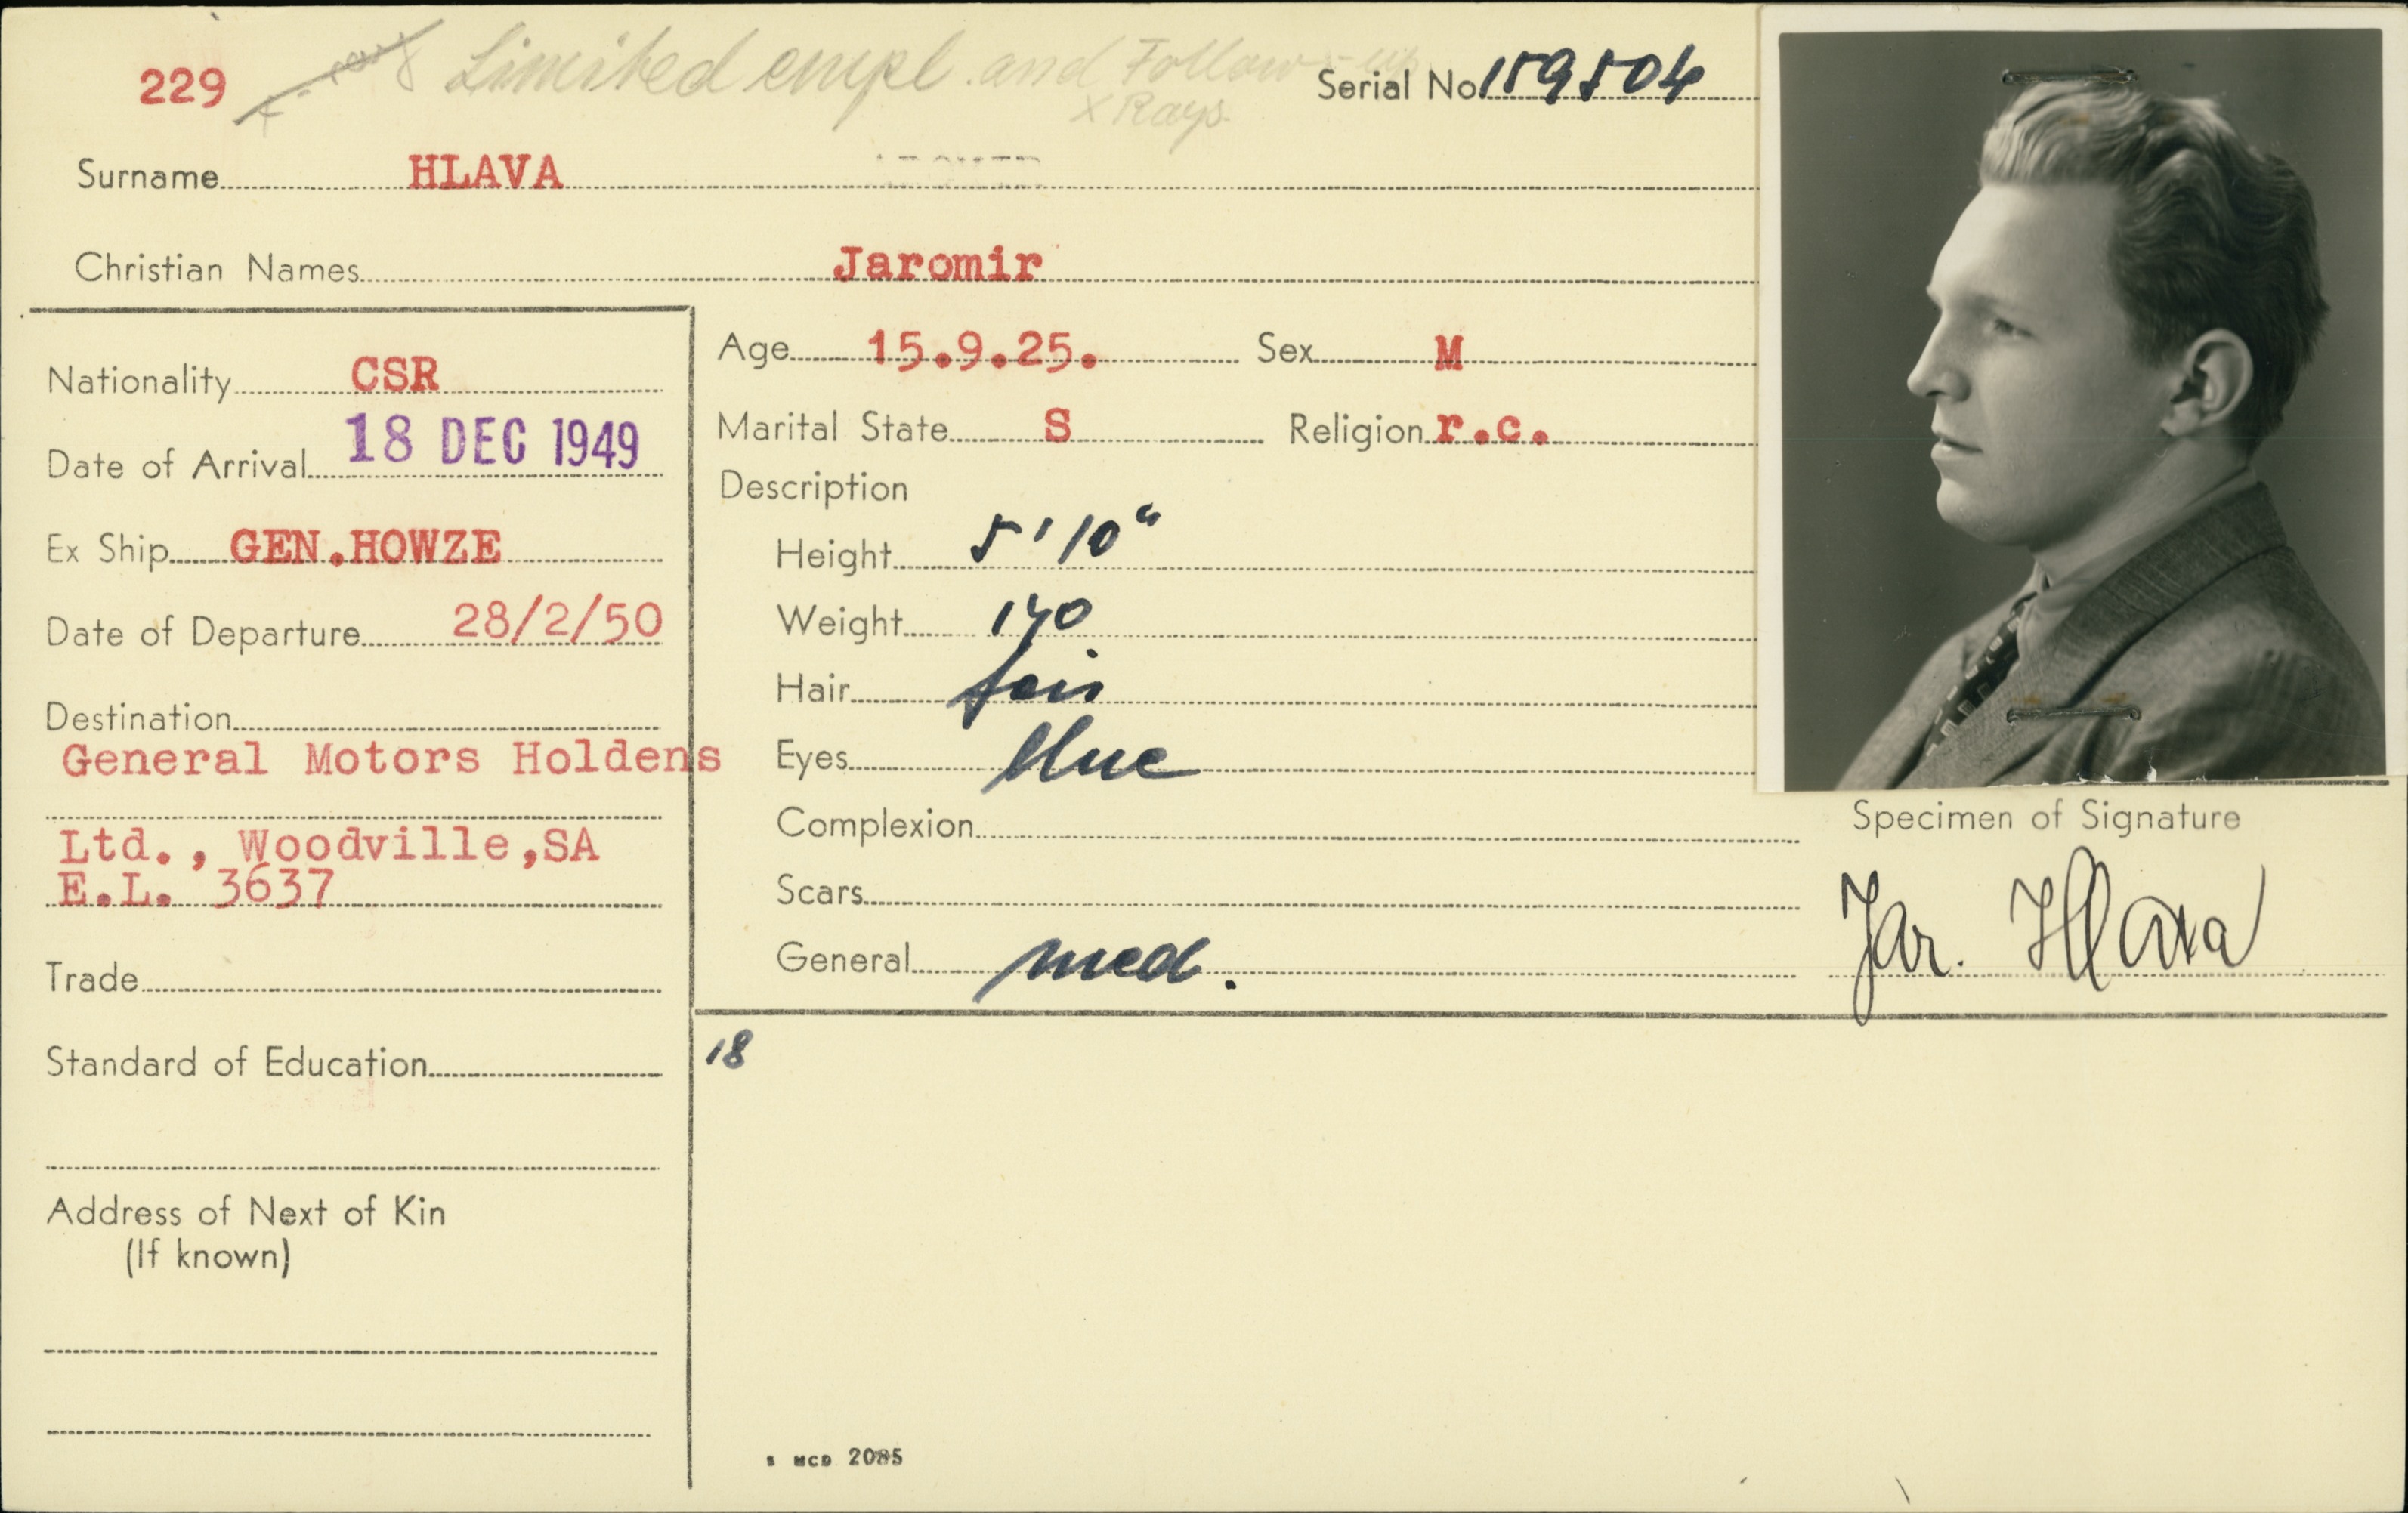 229 Limited empl. and Follow-up
X Rays.
Serial No. 159504
Surname HLAVA
Christian Names Jaromir
Nationality CSR
Date of Arrival 18 DEC 1949
Ex Ship GEN.HOWZE
Date of Departure 28/2/50
Destination
General Motors Holdens
Ltd., Woodville,SA
E.L. 3637
Trade
Standard of Education
Address of Next of Kin
(If known)
Age 15.9.25. Sex M
Marital State S Religion r.c.
Description
Height 5'10"
Weight 170
Hair fair
Eyes blue
Complexion
Scars
General med.
Specimen of Signature
Jar. Hlava
18
MCD 2085